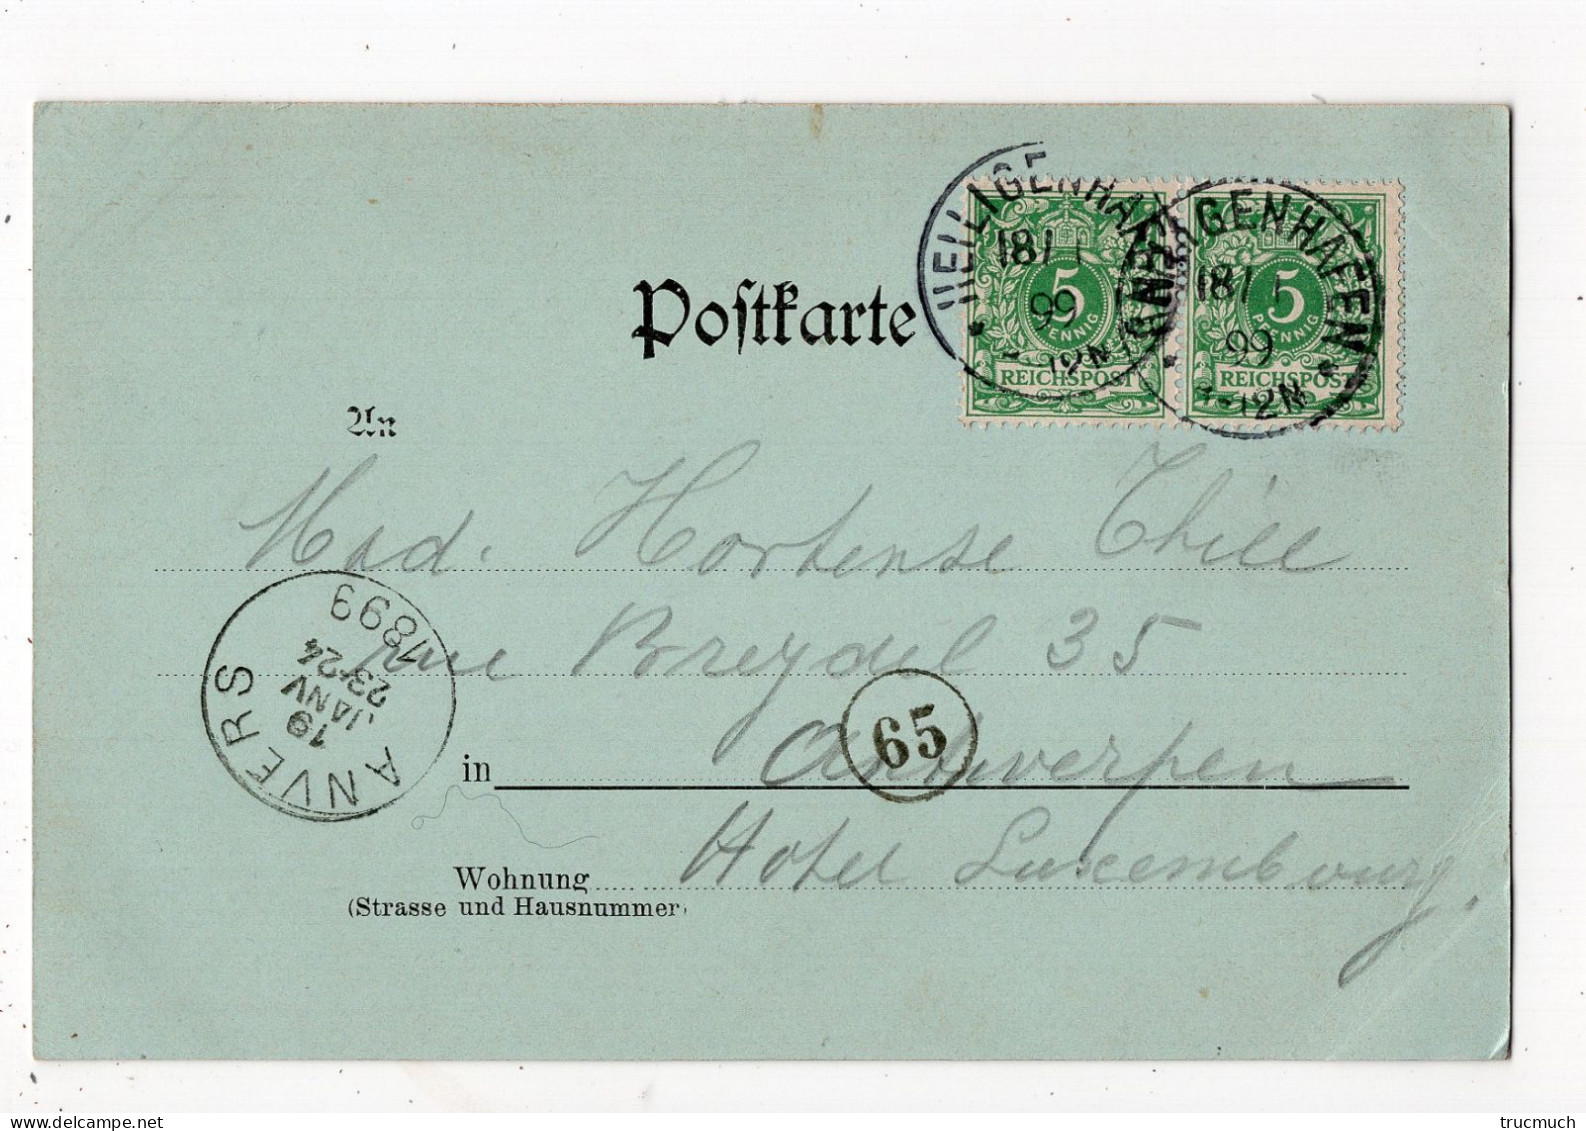 HEILIGENHAFEN
18/1
99
1-2N
HEILIGENHAFEN
18/1
99
1-2N
5
PFENNIG
REICHSPOST
5
PFENNIG
REICHSPOST
Postkarte
An
Mad. Hortense Thill
rue Breydel 35
in Antwerpen
Hotel Luxembourg.
Wohnung
(Strasse und Hausnummer)
ANVERS
19
JANV
23-24
1899
65
trucmuch